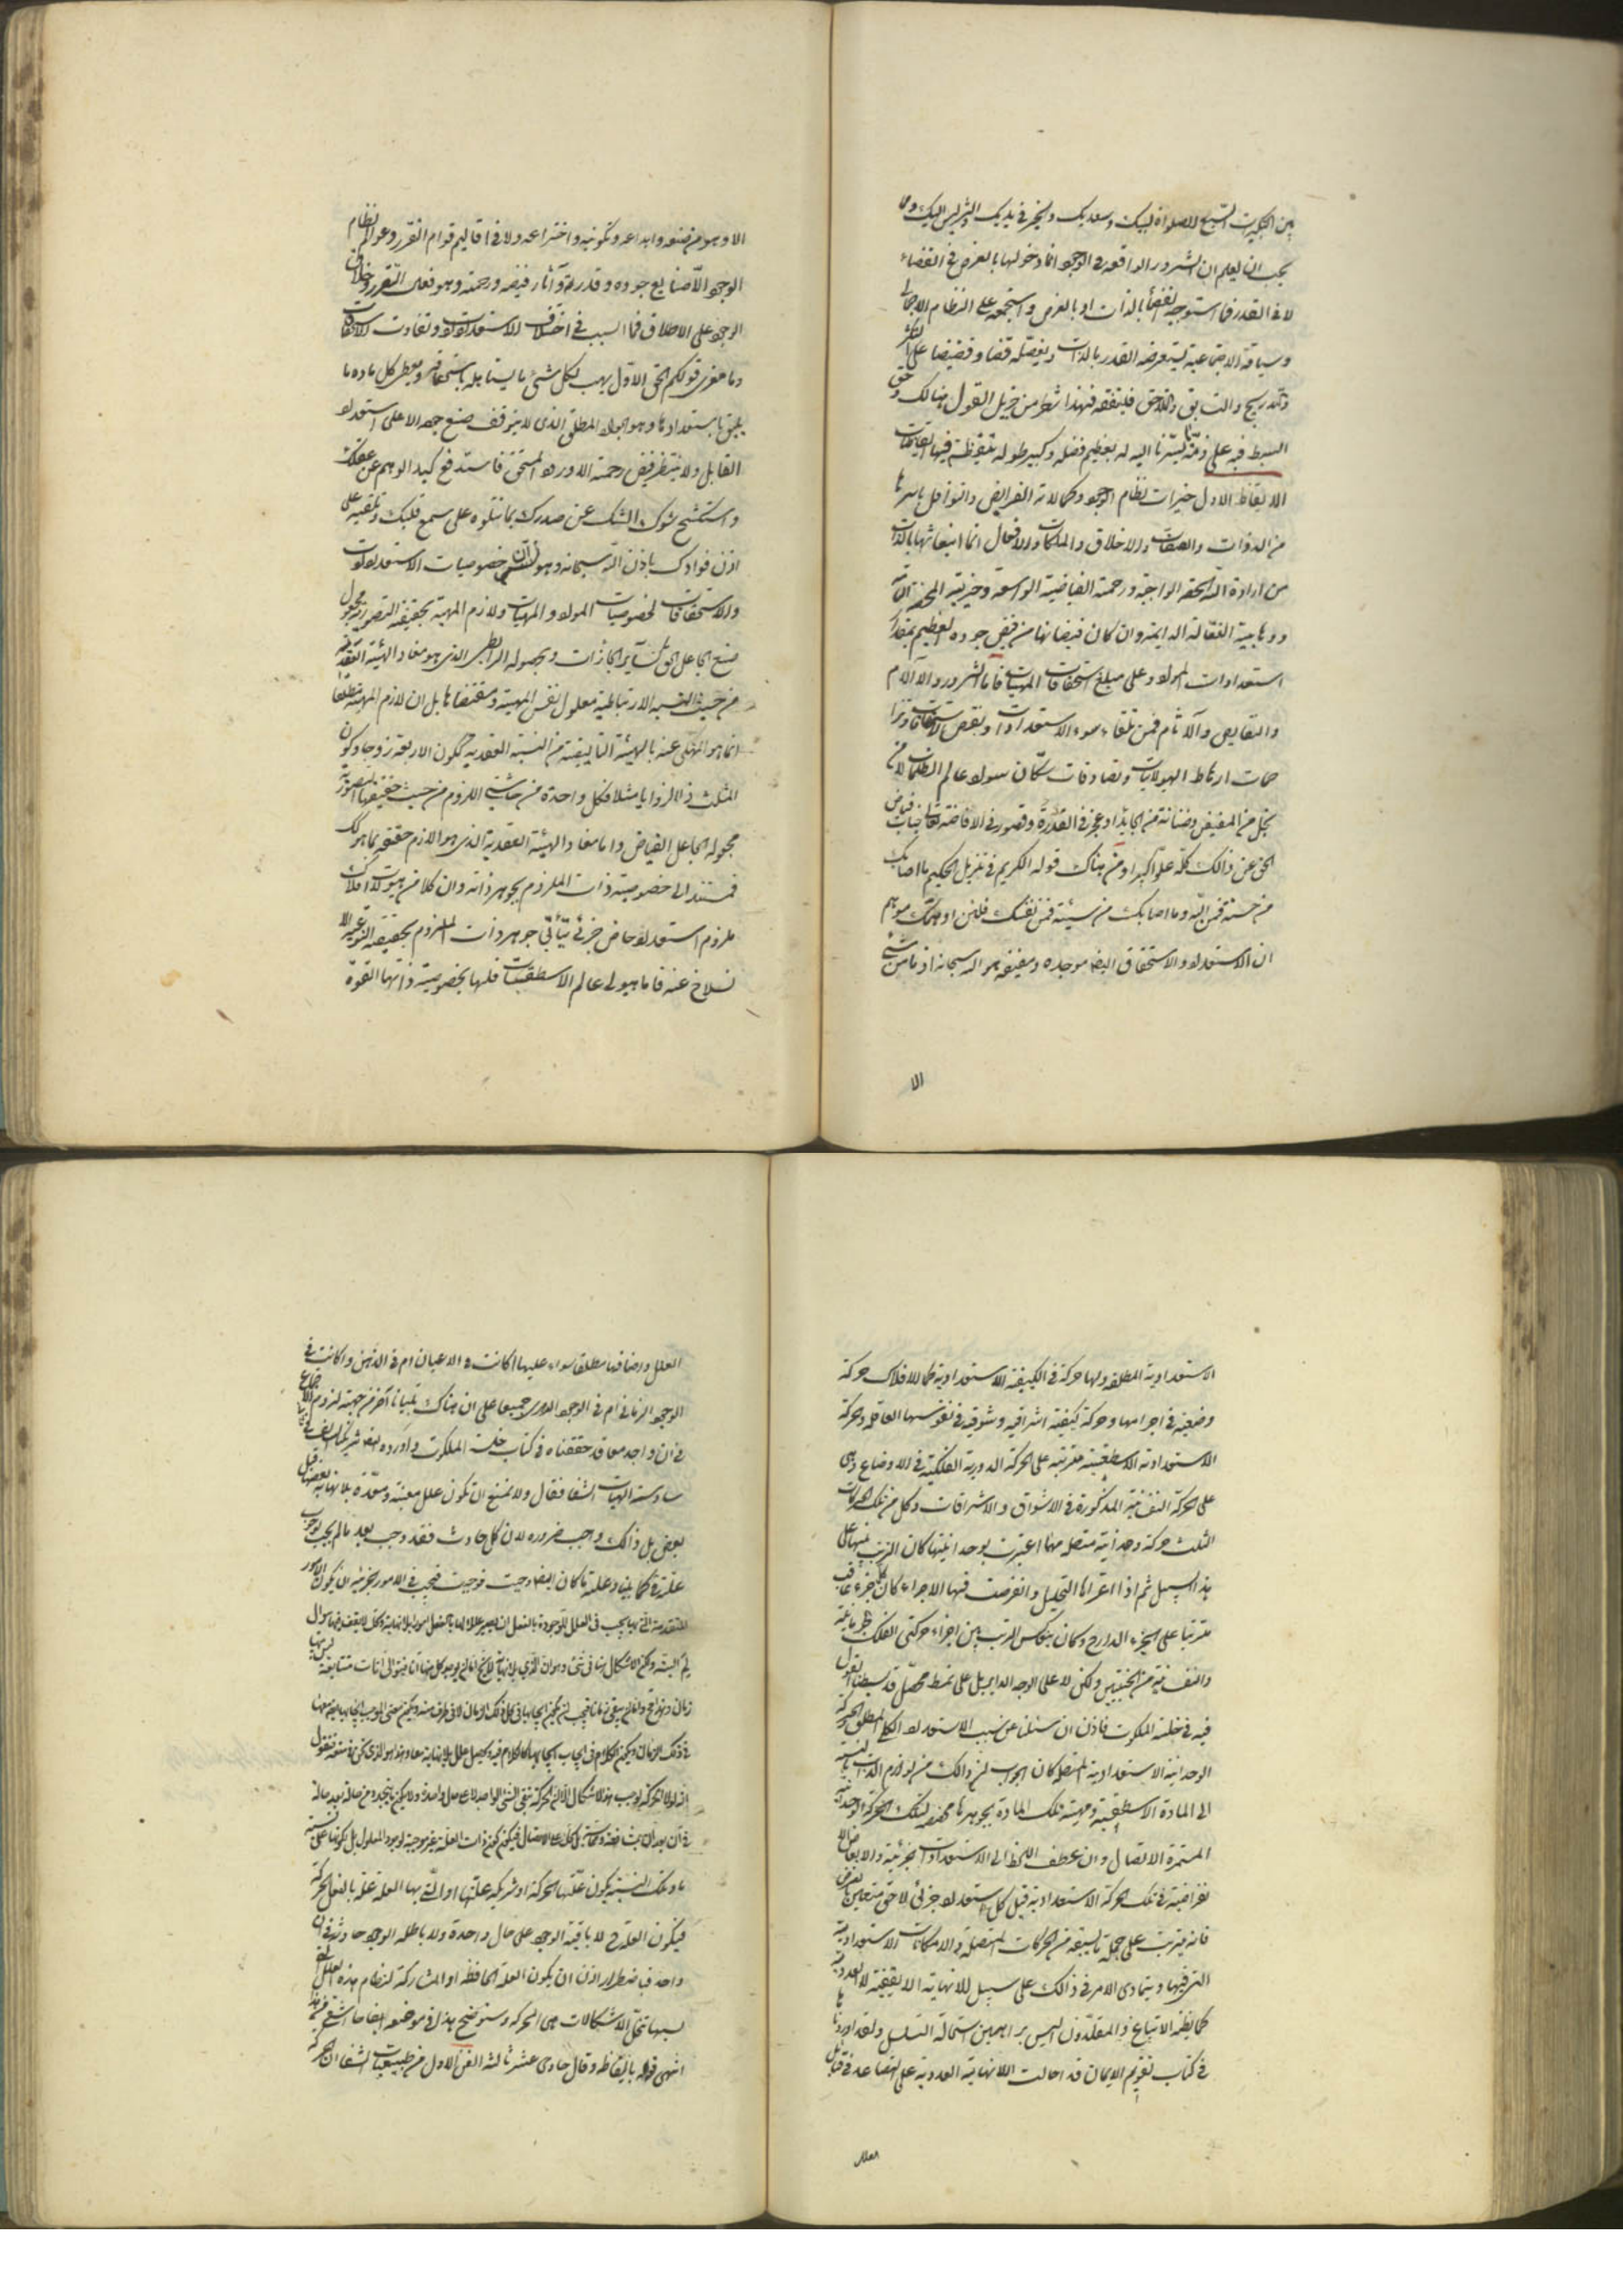 بين التكبيرات التسبيح للصلواة لبيك وسعديك والخير في يديك والشر ليس اليك وما
يجب ان يعلم ان الشرور الواقعة في الوجود انما دخولها بالعرض في القضاء
لا في القدر فما استوجبه القضأ بالذات او بالعرض واستجمعه على النظام الاجمالي
وسياقة الاجتماعية يستعرضه القدر بالذات ويفصله قضا وقضيضا على
والتدريج والسابق واللاحق فليتفقه فهذا شطر من جزيل القول هنالك وحق
البسط فيه على ذمة يسّرنا اليه له بعظيم فضله وكبير طوله تيقيظة فيها ايقاظات
الايقاظ الاول خيرات نظام الوجود وكمالاته الفرايض والنوافل باسرها
من الذوات والصفات والاخلاق والملكات والافعال انما انبعاثها بالذات
من ارادة الله الحقه الواجبة ورحمته الفياضية الواسعة وخيريته المحضة التامة
ووهابيته الفعّالة الدايمة وان كان فيضانها من فيض جوده العظيم بمقدار
استعدادات المواد وعلى مبلغ استحقاقات المهيات فاما الشرور والآلام
والنقايص والآثام فمن تلقاء سوء الاستعدادات ونقص الاستحقاقات
جهات ارتباط الهيولانيات وتصادفات سكان سواد عالم الظلمات لا من
بخل من المفيض وضنانة من الجايد او عجز في القدرة وقصور في الافاضة تعالى جناب فياض
الحق عن ذالك كله علوّا كبيرا ومن هناك قوله الكريم في تنزيل الحكيم ما اصابك
من حسنة فمن الله وما اصابك من سيئة فمن نفسك فلئن اوهمك موهم
ان الاستعداد والاستحقاق ايضا موجده ومفيضه هو الله سبحانه اذ ما من شئ
الا
الا وهو من صنعه وابداعه وتكوينه واختراعه ولا في اقاليم قوام التقرر وعوالم نظام
الوجود الا صنايع جوده وقدرته وآثار فيضه ورحمته وهو فعال التقرر وخلاق
الوجود على الاطلاق فما السبب في اختلاف الاستعدادات وتفاوت الاستحقاقات
وما مغزى قولكم الحق الاول يهب لكل شئ ما يستاهله باستحقاقه ويعطى كل مادة ما
يليق باستعدادها وهو الجواد المطلق الذي لا يتوقف صنع جوده الا على استعداد
القابل ولا ينتظر فيض رحمته الا ورود المستحق فاستدفع كيد الوهم عن عقلك
واستكشح شوك الشك عن صدرك بما نتلوه على سمع قلبك ونلقيه على
اذن فوادك باذن الله سبحانه وهو ان خصوصيات الاستعدادات
والاستحقاقات لخصوصيات المواد والمهيات ولازم المهية بحقيقة التصورية مجعول
صنع الجاعل الحق كساير الجائزات وبحصوله الرابطي الذي هو مفاد الهيئة العقدية
من حيث النسبة الارتباطية معلول نفس المهية ومقتضاها بل ان لازم المهية مطلقا
انما هو المحكي عنه بالهيئة التاليفية من النسبة العقدية ككون الاربعة زوجا وكون
المثلث ذا الزوايا مثلا فكل واحدة من حاشيتي اللزوم من حيث حقيقتها التصورية
مجعولة الجاعل الفياض واما مفاد الهيئة العقدية الذي هو اللازم حقيقة بما هو كك
فمستند الى خصوصية ذات الملزوم بجوهر ذاته وان كلا من هيوليات الافلاك
ملزوم استعداد خاص جزئي يتأبى جوهر ذات الملزوم بحقيقته النوعية الا
نسلاخ عنه فاما هيولى عالم الاسطقسات فلها بخصوصية ذاتها القوة
الاستعدادية المطلقة ولها حركة في الكيفية الاستعدادية كما للافلاك حركة
وضعية في اجرامها وحركة كيفية اشراقية وشوقية في نفوسها العاقلة والحركة
الاستعدادية الاسطقسية مترتبة على الحركة الدورية الفلكية في الاوضاع وهى
على الحركة النفسانية المذكورة في الاشواق والاشراقات وكل من تلك الحركات
الثلث حركة وحدانية متصلة مهما اعتبرت بوحدانيتها كان الترتب بينها على
هذا السبيل ثم اذا اعتراها التحليل وانفرضت فيها الاجزاء كان كل جزء عاقب
مترتبا على الجزء الدارج وكان ينعكس الترتب بين اجزاء حركتى الفلك الجرمانية
والنفسانية من الجنبتين ولكن لا على الوجه الداير بل على نمط محصل قد بسطنا القول
فيه في خلسة الملكوت فاذن ان سئلنا عن سبب الاستعداد الكلي المطلق والحركة
الوحدانية الاستعدادية المتصلة كان الجواب ان ذالك من لوازم الذات بالنسبة
الى المادة الاسطقسية ومهية تلك المادة بجوهرها مقتضية لتلك الحركة الوحدانية
المستمرة الاتصال وان عطف اللحظ الى الاستعدادات الجزئية والابعاض
نفراضية في تلك الحركة الاستعدادية قيل كل استعداد جزئي لاحق متعين بالعرض
فانه يترتب على جملة ما يسبقه من الحركات المتصلة والامكانات الاستعدادية
التى فيها ويتمادى الامر في ذالك على سبيل اللانهاية اللايقفية لا العددية
كما يظنه الاتباع والمقلدون اليس براهين استحالة التسلسل ولقد اوردناها
في كتاب تقويم الايمان قد احالت اللانهاية العددية على التصاعد في قبائل
العلل
العلل واضافتها مطلقا سواء عليها اكانت في الاعيان ام في الذهن واكانت في
الوجود الزماني ام في الوجود الدهرى جميعا على ان هناك تبيانا آخر من جهة لزوم الاجتماع
في ان واحد معا قد حققناه في كتاب خلسة الملكوت واورده ايضا شريكنا السالف في
سادسة الهيات الشفا فقال ولا نمنع ان تكون علل معينة ومعدة بلا نهاية بعضها قبل
بعض بل ذالك واجب ضرورة لان كل حادث فقد وجب بعد ما لم يجب لوجوب
علته كما بينا وعلته ما كان ايضا وجبت فوجبت فيجب في الامور الجزئية ان يكون الامور
المتقدمة التى بها يجب في العلل الموجودة بالفعل ان يصير عللا لها بالفعل امورا بلا نهاية ولذلك لا يقف فيها سوال
لم البتة ولكن الاشكال هنا في شئ وهو ان الذي بلا نهاية لا يخ اما ان يوجد كل منها آنا فيتوالى انات متتابعة ليس بينها
زمان وهذا مح واما ان يبقى زمانا فيجب ان يكون ايجابها في كل ذلك الزمان لا في طرف منه ويكون معنى الموجب لايجابها ايضا معها
في ذلك الزمان ويكون الكلام في ايجاب ايجابها كالكلام فيه ويحصل علل بلا نهاية معا وهذا هو الذي نحن في منعه فنقول
انه لولا الحركة لوجب هذا الاشكال الا ان الحركة تبقى الشئ الواحد لا على حال واحدة ولا يكون ما يتجدد من حالة بعد حالة
في ان بعد ان يشافعه ويماسه بل كان على الاتصال فيكون ذات العلة غير موجبة لوجود المعلول بل لكونها على نسبة
ما وتلك النسبة يكون علتها الحركة او شريكه علتها او التي بها العلة علة بالفعل الحركة
فيكون العلة ح لا باقية الوجود على حال واحدة ولا باطلة الوجود حادثة في ان
واحد فباضطرار اذن ان يكون العلة الحافظة او المشاركة لنظام هذه العلل التى
بسببها تنحل الاشكالات هى الحركة وسنوضح هذا في موضعه ايضاحا اشفى من هذا
انتهى قوله بالفاظه وقال حادى عشر ثالثة الفن الاول من طبيعيات الشفا ان الحركة